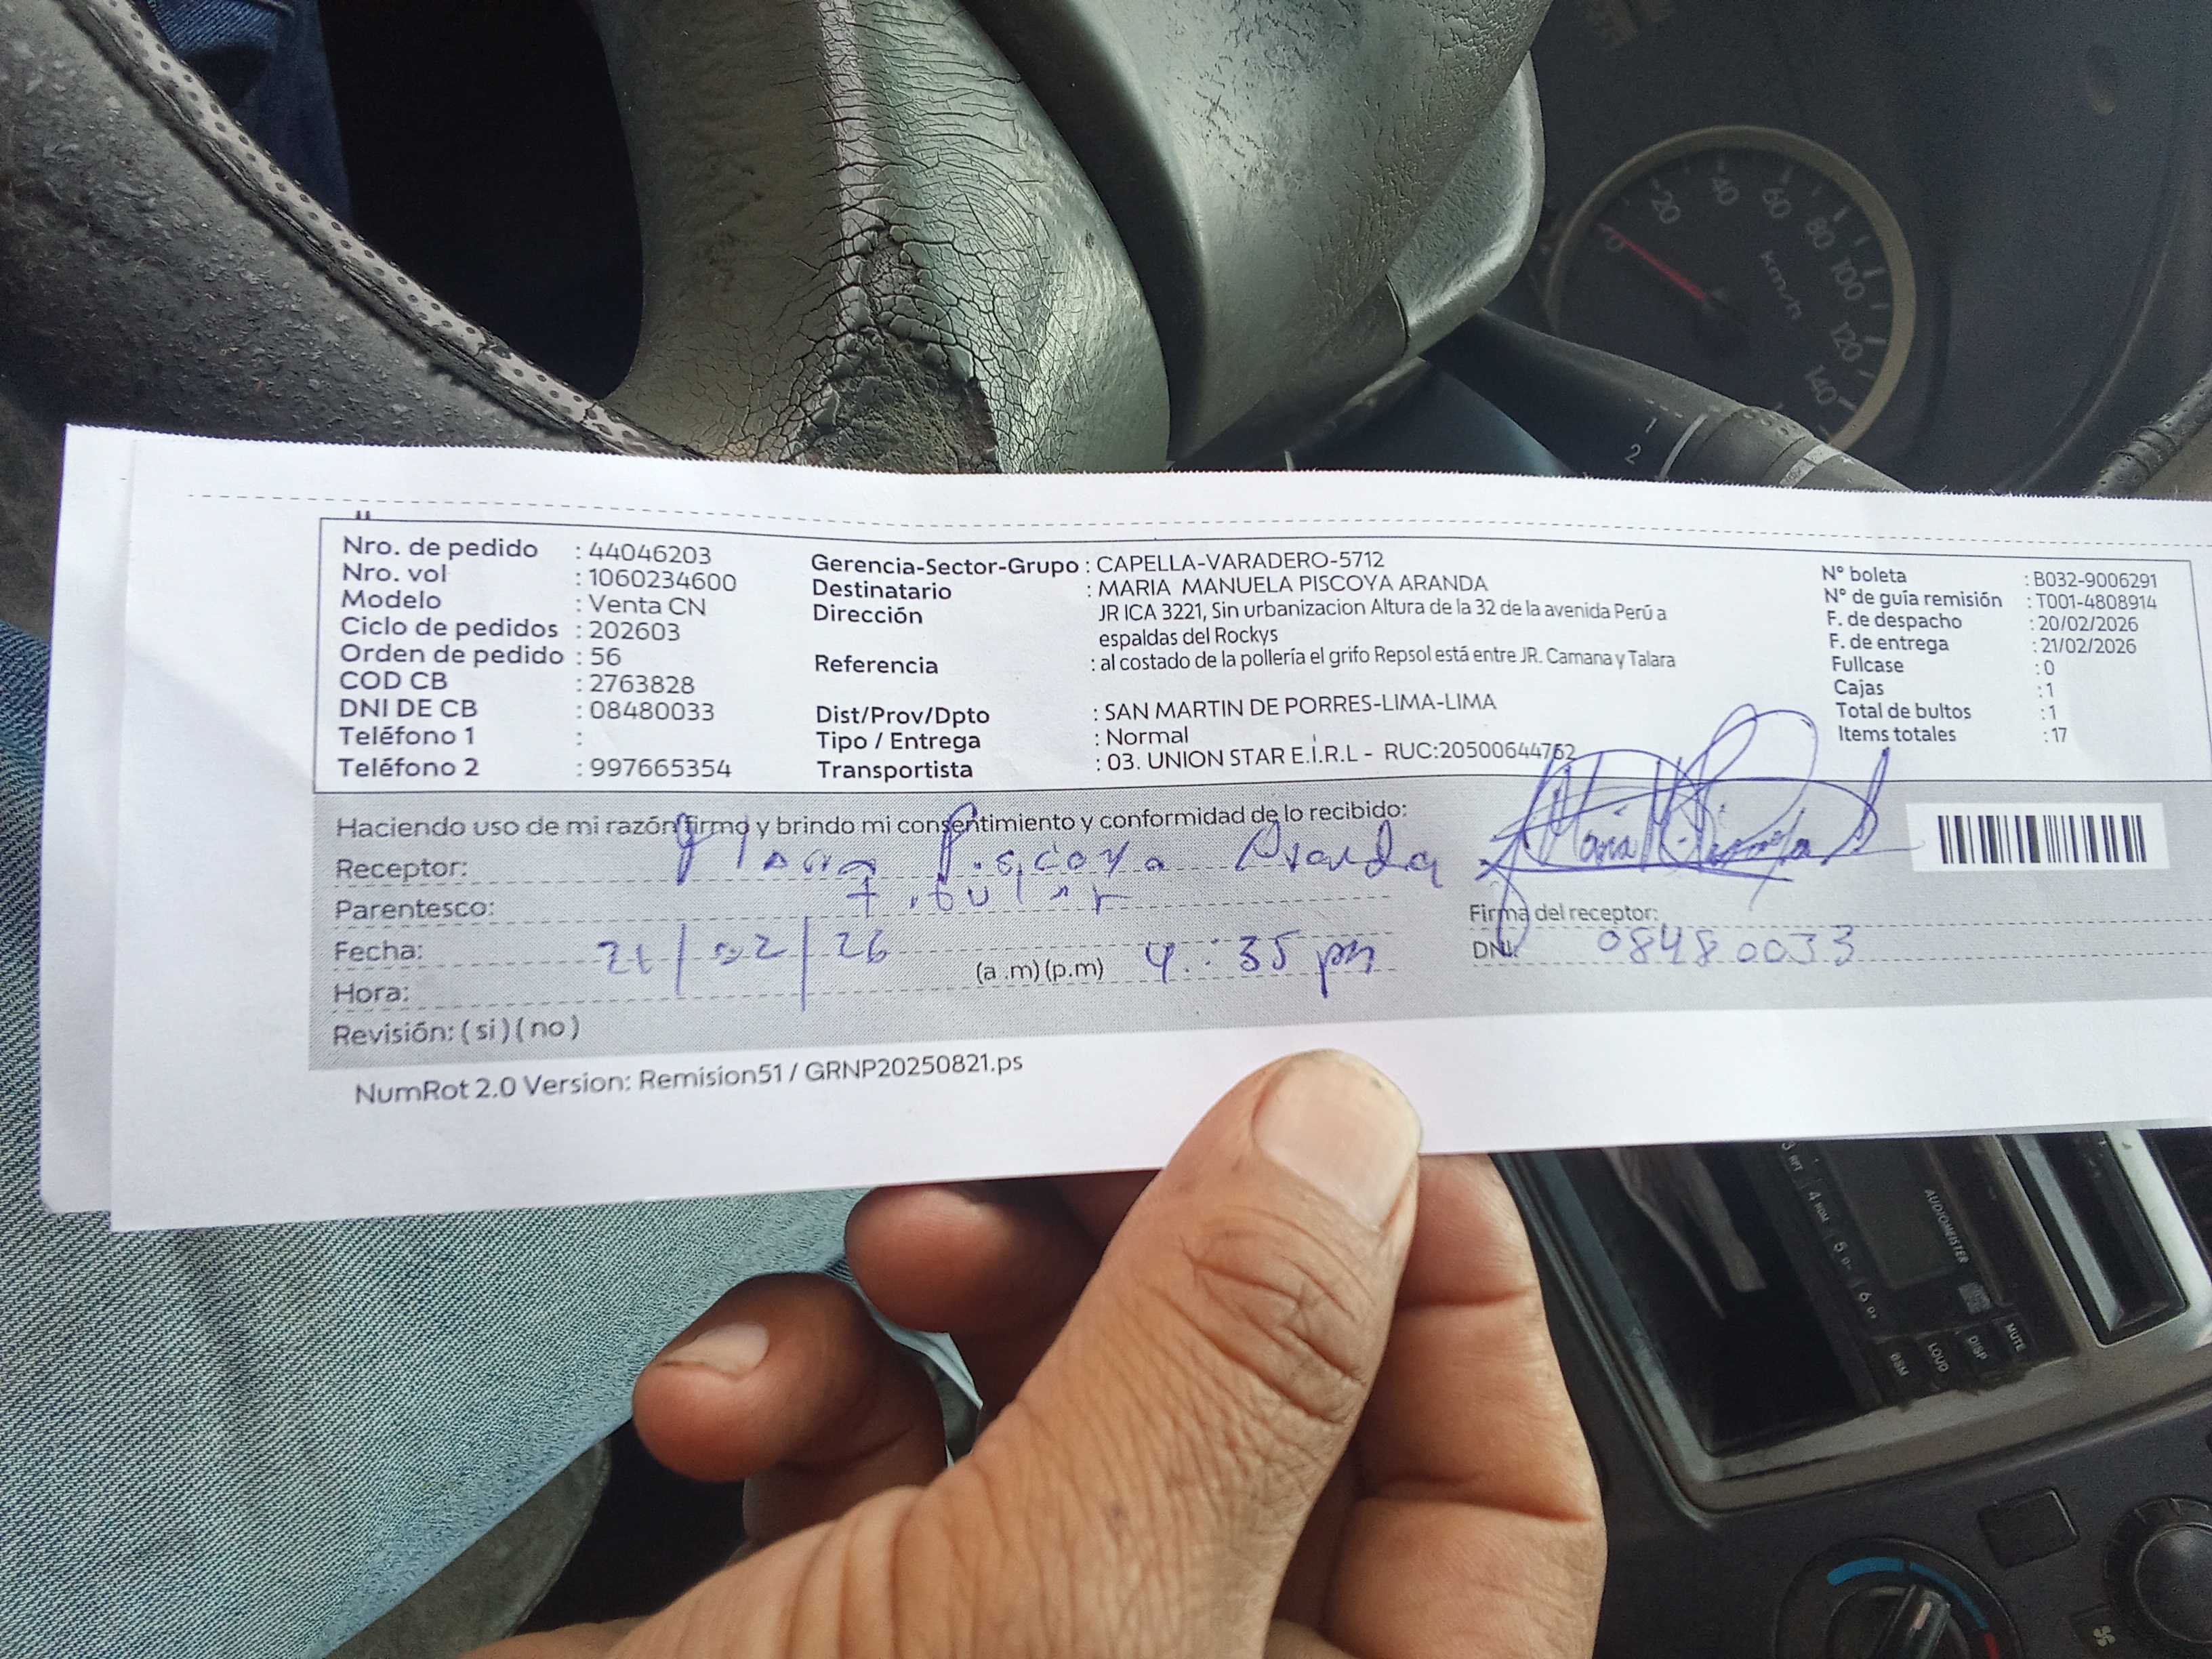 Nro. de pedido : 44046203
Nro. vol : 1060234600
Modelo : Venta CN
Ciclo de pedidos : 202603
Orden de pedido : 56
COD CB : 2763828
DNI DE CB : 08480033
Teléfono 1 :
Teléfono 2 : 997665354
Gerencia-Sector-Grupo : CAPELLA-VARADERO-5712
Destinatario : MARIA MANUELA PISCOYA ARANDA
Dirección JR ICA 3221, Sin urbanizacion Altura de la 32 de la avenida Perú a
espaldas del Rockys
Referencia : al costado de la pollería el grifo Repsol está entre JR. Camana y Talara
Dist/Prov/Dpto : SAN MARTIN DE PORRES-LIMA-LIMA
Tipo / Entrega : Normal
Transportista : 03. UNION STAR E.I.R.L - RUC:20500644762
N° boleta : B032-9006291
N° de guía remisión : T001-4808914
F. de despacho : 20/02/2026
F. de entrega : 21/02/2026
Fullcase : 0
Cajas : 1
Total de bultos : 1
Items totales : 17
Haciendo uso de mi razón firmo y brindo mi consentimiento y conformidad de lo recibido:
Receptor: Piscoya Aranda
Parentesco: titular
Fecha: 21/02/26
Hora: (a .m) (p.m) 4:35 pm
Revisión: ( si ) ( no )
Firma del receptor:
DNI: 08480033
NumRot 2.0 Version: Remision51 / GRNP20250821.ps
0 20 40 60 80 100 120 140
km/h
1
2
AUDIOMEISTER
4 RDM
5
6
BSM
LOUD
DISP
MUTE